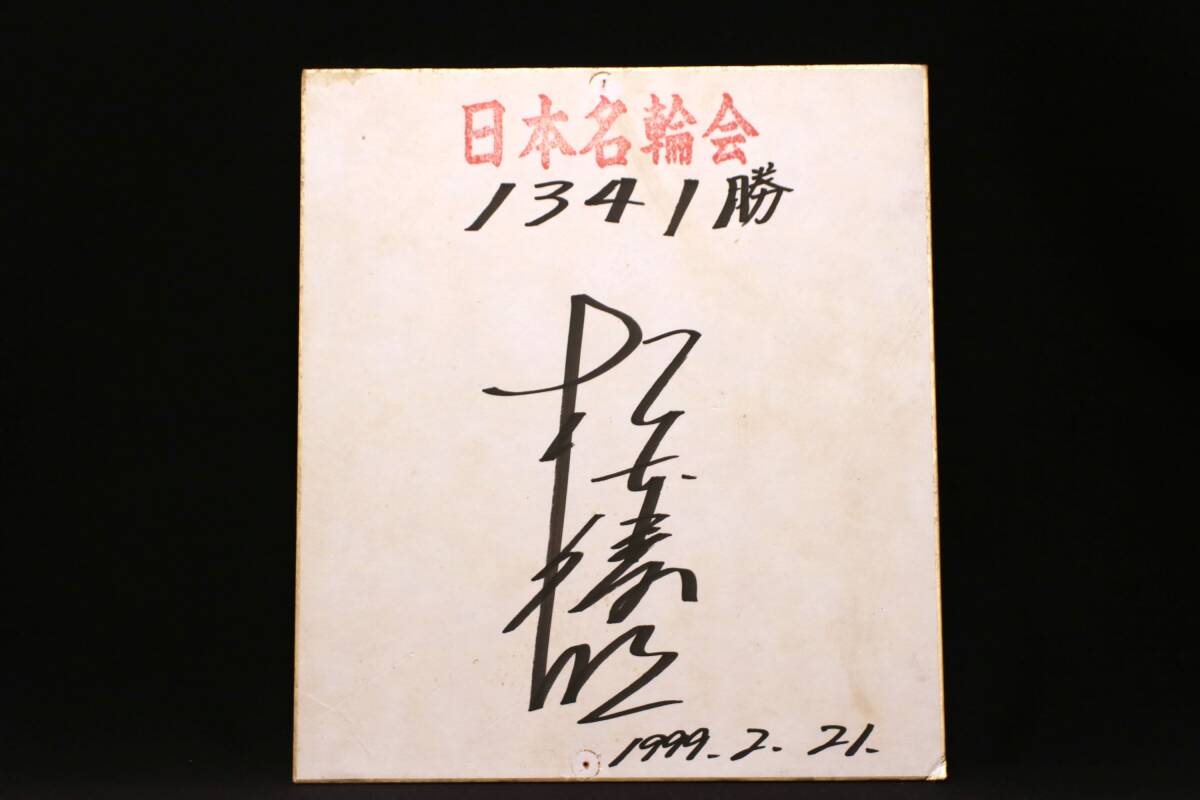 日本名輪会
1341勝
松本勝明
1999.2.21.